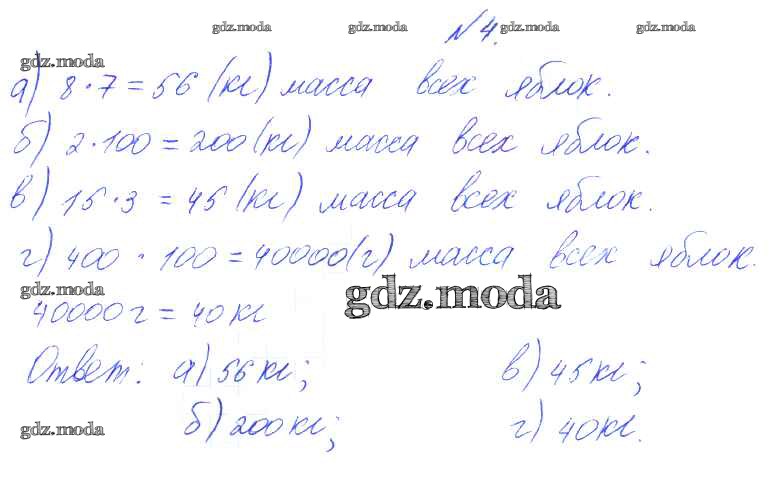 gdz.moda gdz.moda gdz.moda
№4.
gdz.moda
а) 8·7=56 (кг) масса всех яблок.
б) 2·100=200(кг) масса всех яблок.
в) 15·3=45(кг) масса всех яблок.
г) 400·100=40000(г) масса всех яблок.
gdz.moda gdz.moda
40000г=40кг
Ответ: а) 56кг; в) 45кг;
gdz.moda б) 200кг; г) 40кг.